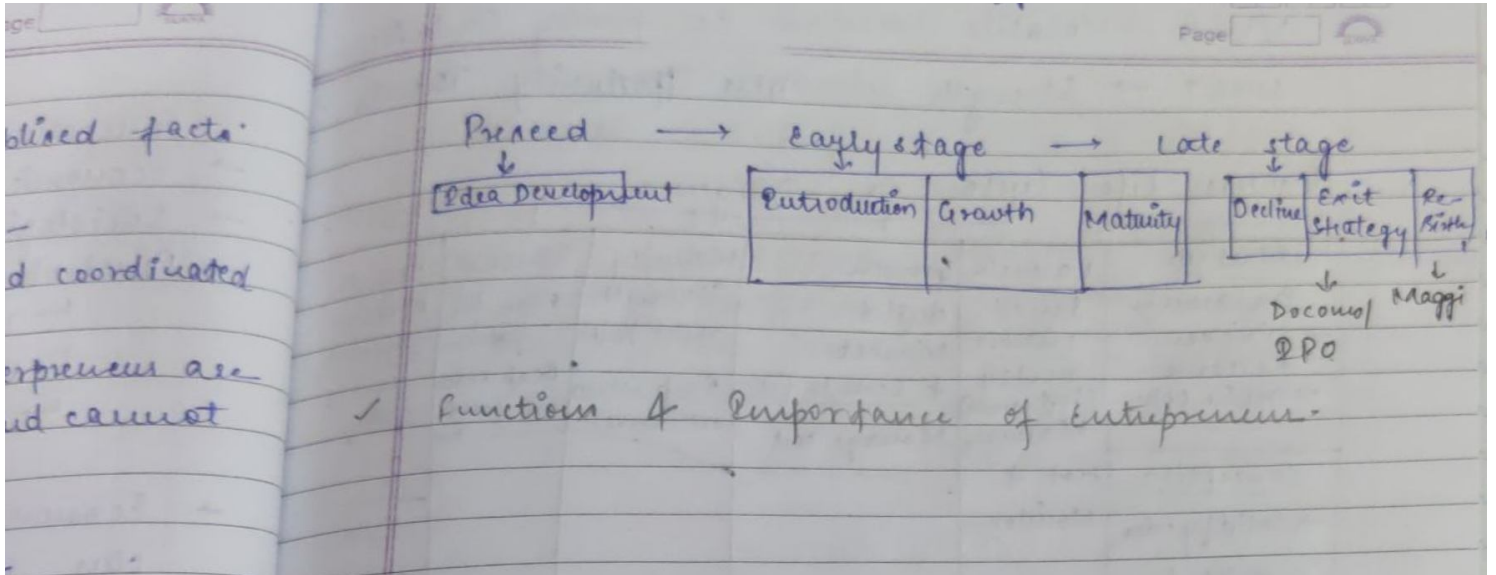 Page
blined facts.
d coordinated
erpreneurs are
nd cannot
Page
Preneed → Early stage → Late stage
↓ ↓ ↓
Idea Development Introduction Growth Maturity Decline Exit Strategy Re-Birth
↓ ↓
Docomo/ Maggi
IPO
✓ Functions & Importance of entrepreneur.